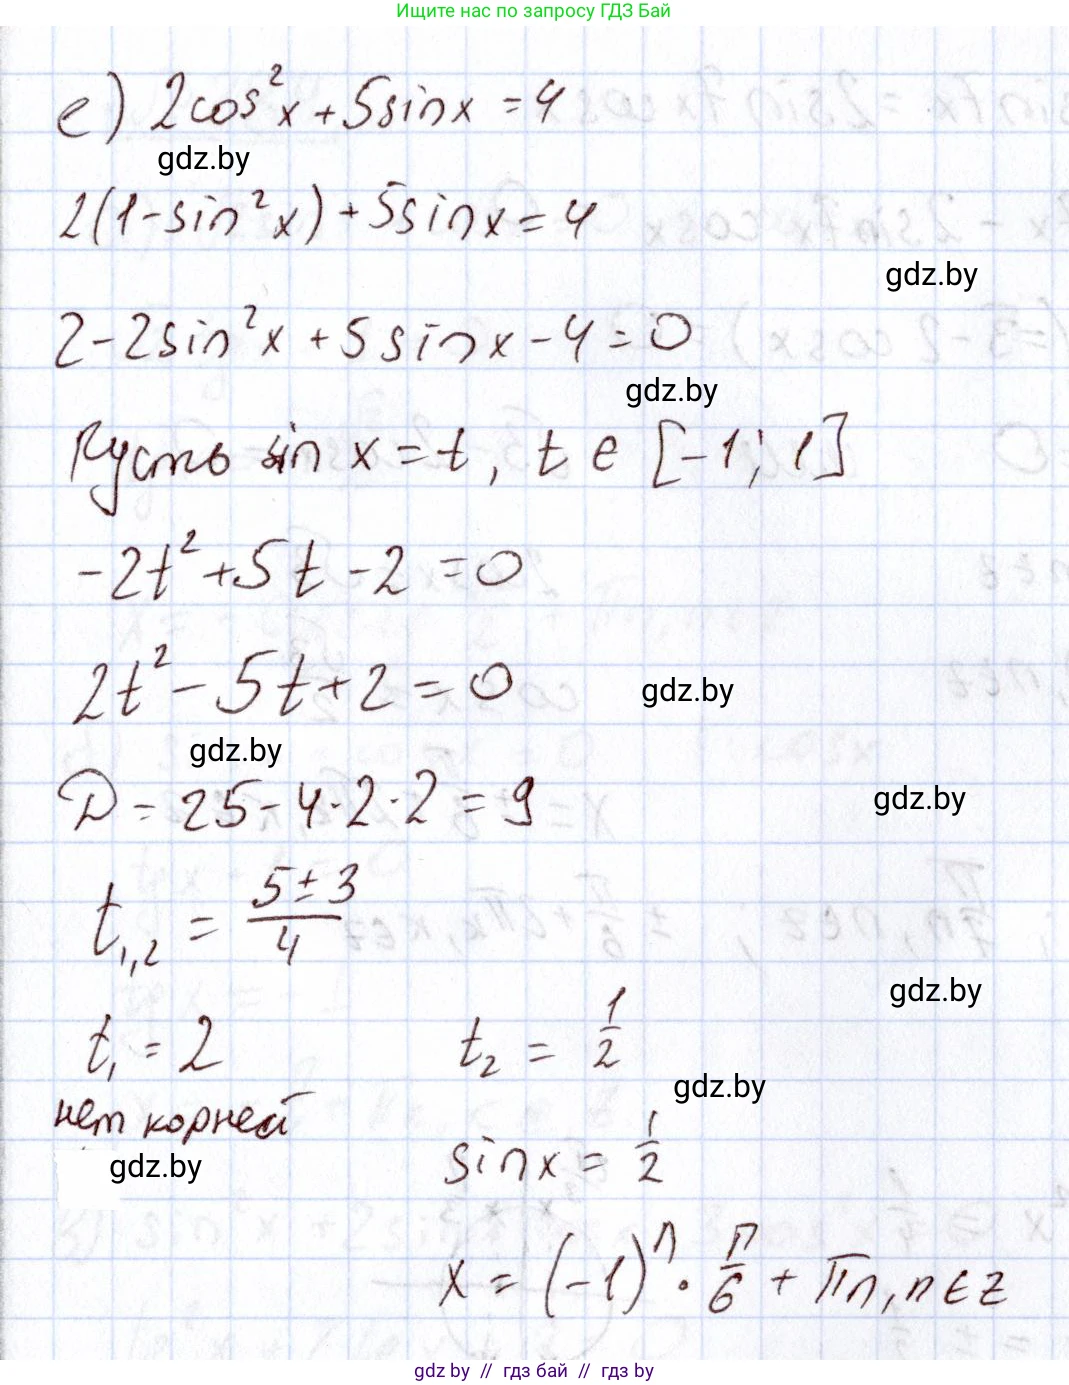 Ищите нас по запросу ГДЗ Бай
е) 2cos²x + 5sinx = 4
gdz.by
2(1-sin²x) + 5sinx = 4
gdz.by
2-2sin²x + 5sinx - 4 = 0
gdz.by
Пусть sin x = t, t ∈ [-1; 1]
-2t² + 5t - 2 = 0
2t² - 5t + 2 = 0
gdz.by
gdz.by
D = 25 - 4·2·2 = 9
gdz.by
t₁,₂ = (5±3)/4
gdz.by
t₁ = 2 t₂ = 1/2
gdz.by
нет корней
sinx = 1/2
gdz.by
x = (-1)ⁿ · π/6 + πn, n∈Z
gdz by // гдз бай // гдз by